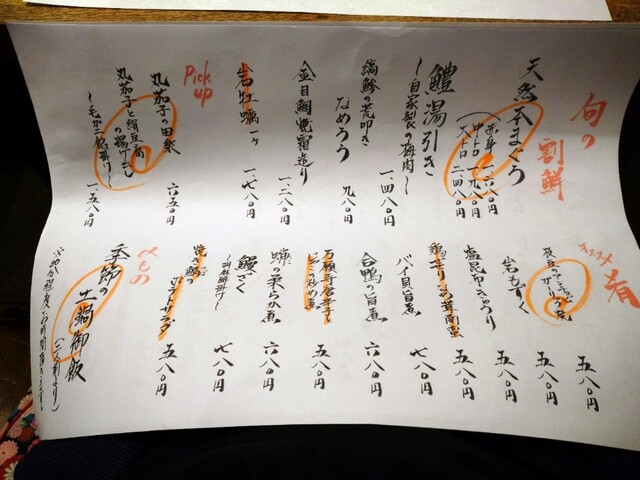 旬の
割鮮
天然本まぐろ
(赤身 一二八〇円
中トロ 一九八〇円
大トロ 二四八〇円
鱧湯引き
〜自家製の梅肉〜
一四八〇円
縞鯵の荒叩き
なめろう
九八〇円
金目鯛焼霜造り
一二八〇円
岩牡蠣一ヶ
一、七八〇円
Pick
up
丸茄子の田楽
六五〇円
丸茄子と絹豆腐
の揚げ出し
〜毛がに餡掛け〜
一、五八〇円
オススメ
肴
五八〇円
岩もずく
五八〇円
塩昆布きゅうり
五八〇円
五八〇円
バイ貝旨煮
七八〇円
合鴨の旨煮
六八〇円
万願寺唐辛子と
じゃこの炒め煮
五八〇円
蛸の柔らか煮
六八〇円
鰻ざく
七八〇円
ポテトサラダ
五八〇円
〆もの
季節の
土鍋御飯